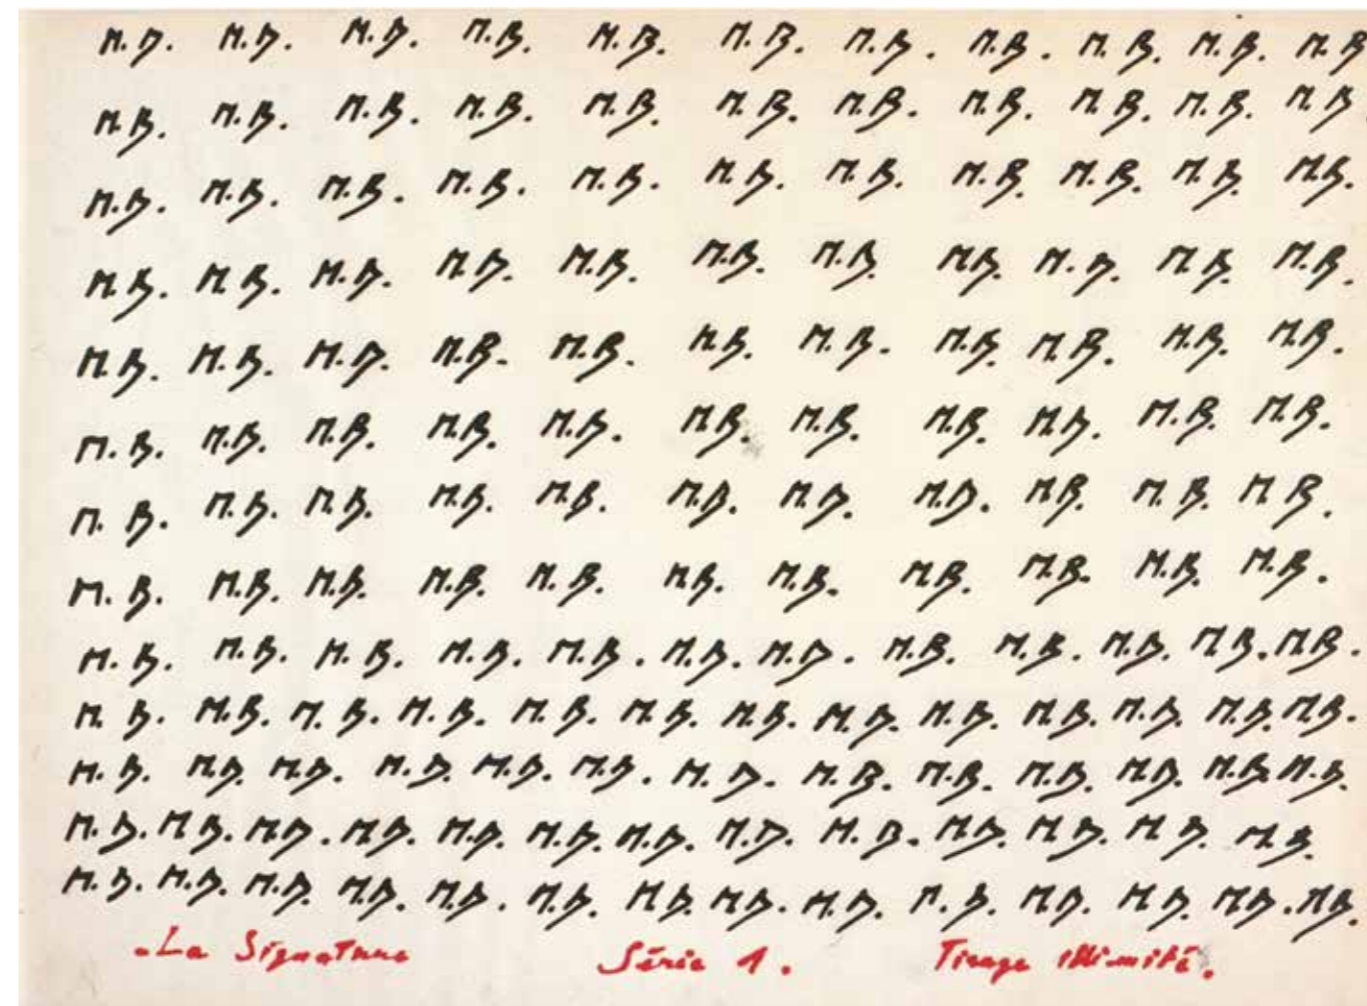 M.B. M.B. M.B. M.B. M.B. M.B. M.B. M.B. M.B. M.B. M.B
M.B. M.B. M.B. M.B. M.B. M.B. M.B. M.B. M.B. M.B. M.B.
M.B. M.B. M.B. M.B. M.B. M.B. M.B. M.B. M.B. M.B. M.B.
M.B. M.B. M.B. M.B. M.B. M.B. M.B. M.B. M.B. M.B. M.B.
M.B. M.B. M.B. M.B. M.B. M.B. M.B. M.B. M.B. M.B. M.B.
M.B. M.B. M.B. M.B. M.B. M.B. M.B. M.B. M.B. M.B. M.B.
M.B. M.B. M.B. M.B. M.B. M.B. M.B. M.B. M.B. M.B. M.B.
M.B. M.B. M.B. M.B. M.B. M.B. M.B. M.B. M.B. M.B. M.B.
M.B. M.B. M.B. M.B. M.B. M.B. M.B. M.B. M.B. M.B. M.B. M.B.
M.B. M.B. M.B. M.B. M.B. M.B. M.B. M.B. M.B. M.B. M.B. M.B. M.B.
M.B. M.B. M.B. M.B. M.B. M.B. M.B. M.B. M.B. M.B. M.B. M.B. M.B.
M.B. M.B. M.B. M.B. M.B. M.B. M.B. M.B. M.B. M.B. M.B. M.B. M.B.
M.B. M.B. M.B. M.B. M.B. M.B. M.B. M.B. M.B. M.B. M.B. M.B. M.B. M.B.
-La Signature Série 1. Tirage illimité.